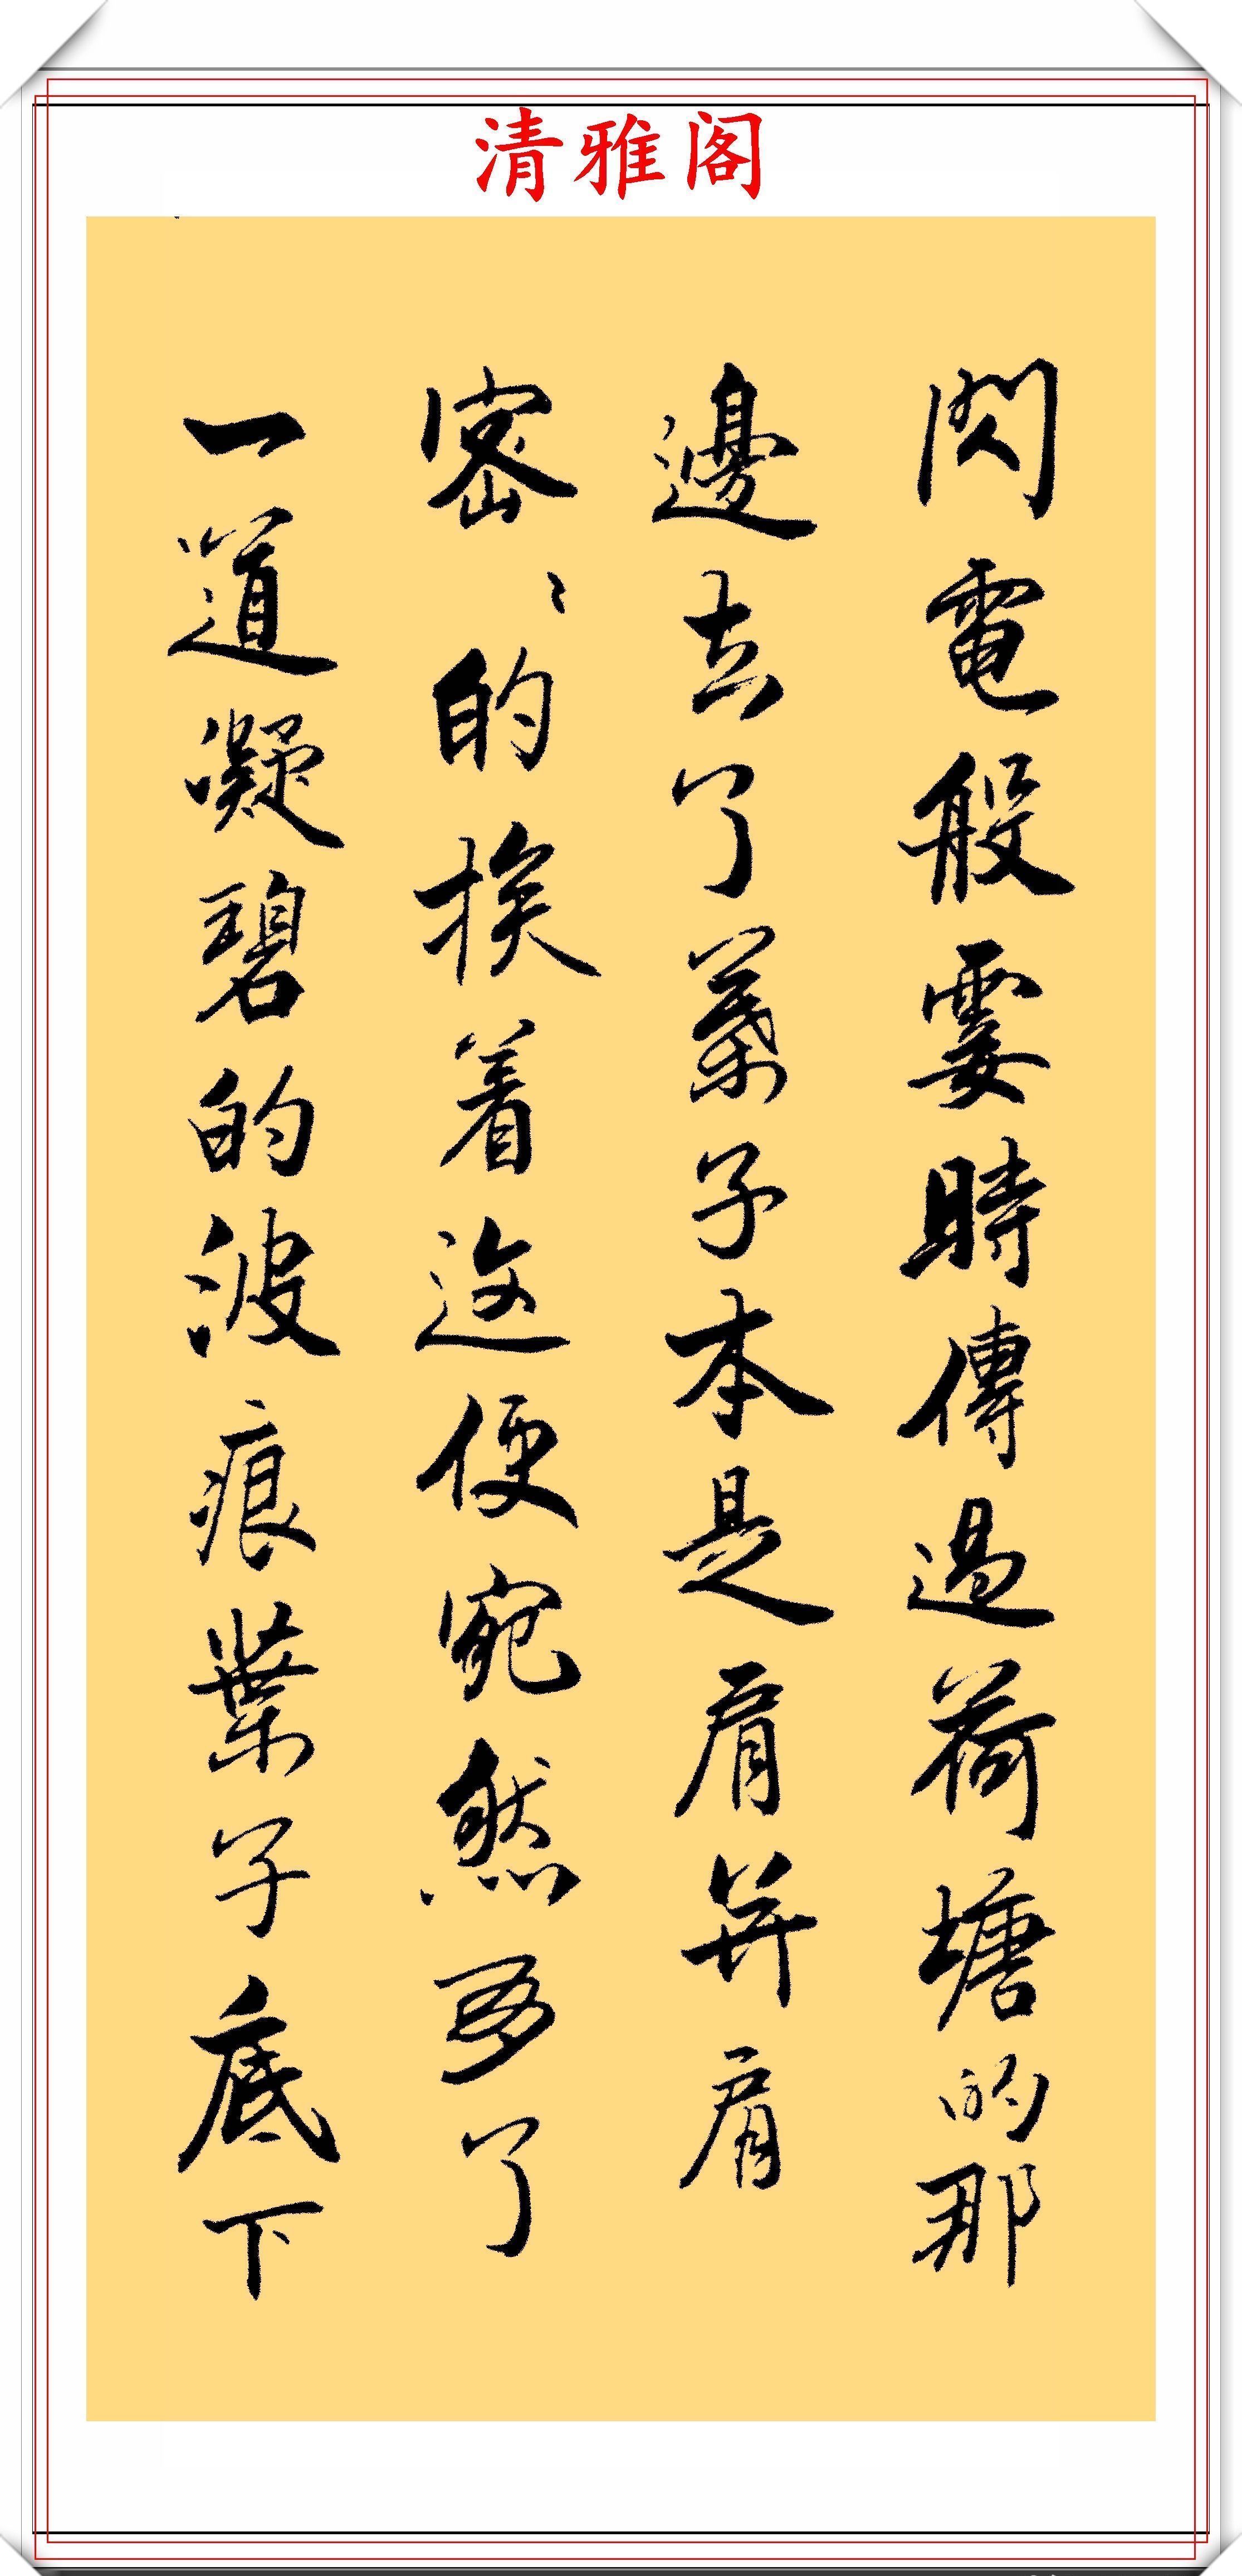 清雅阁
閃電般霎時傳過荷塘的那
邊去了葉子本是肩并肩
密、的挨着這便宛然有了
一道凝碧的波痕葉子底下